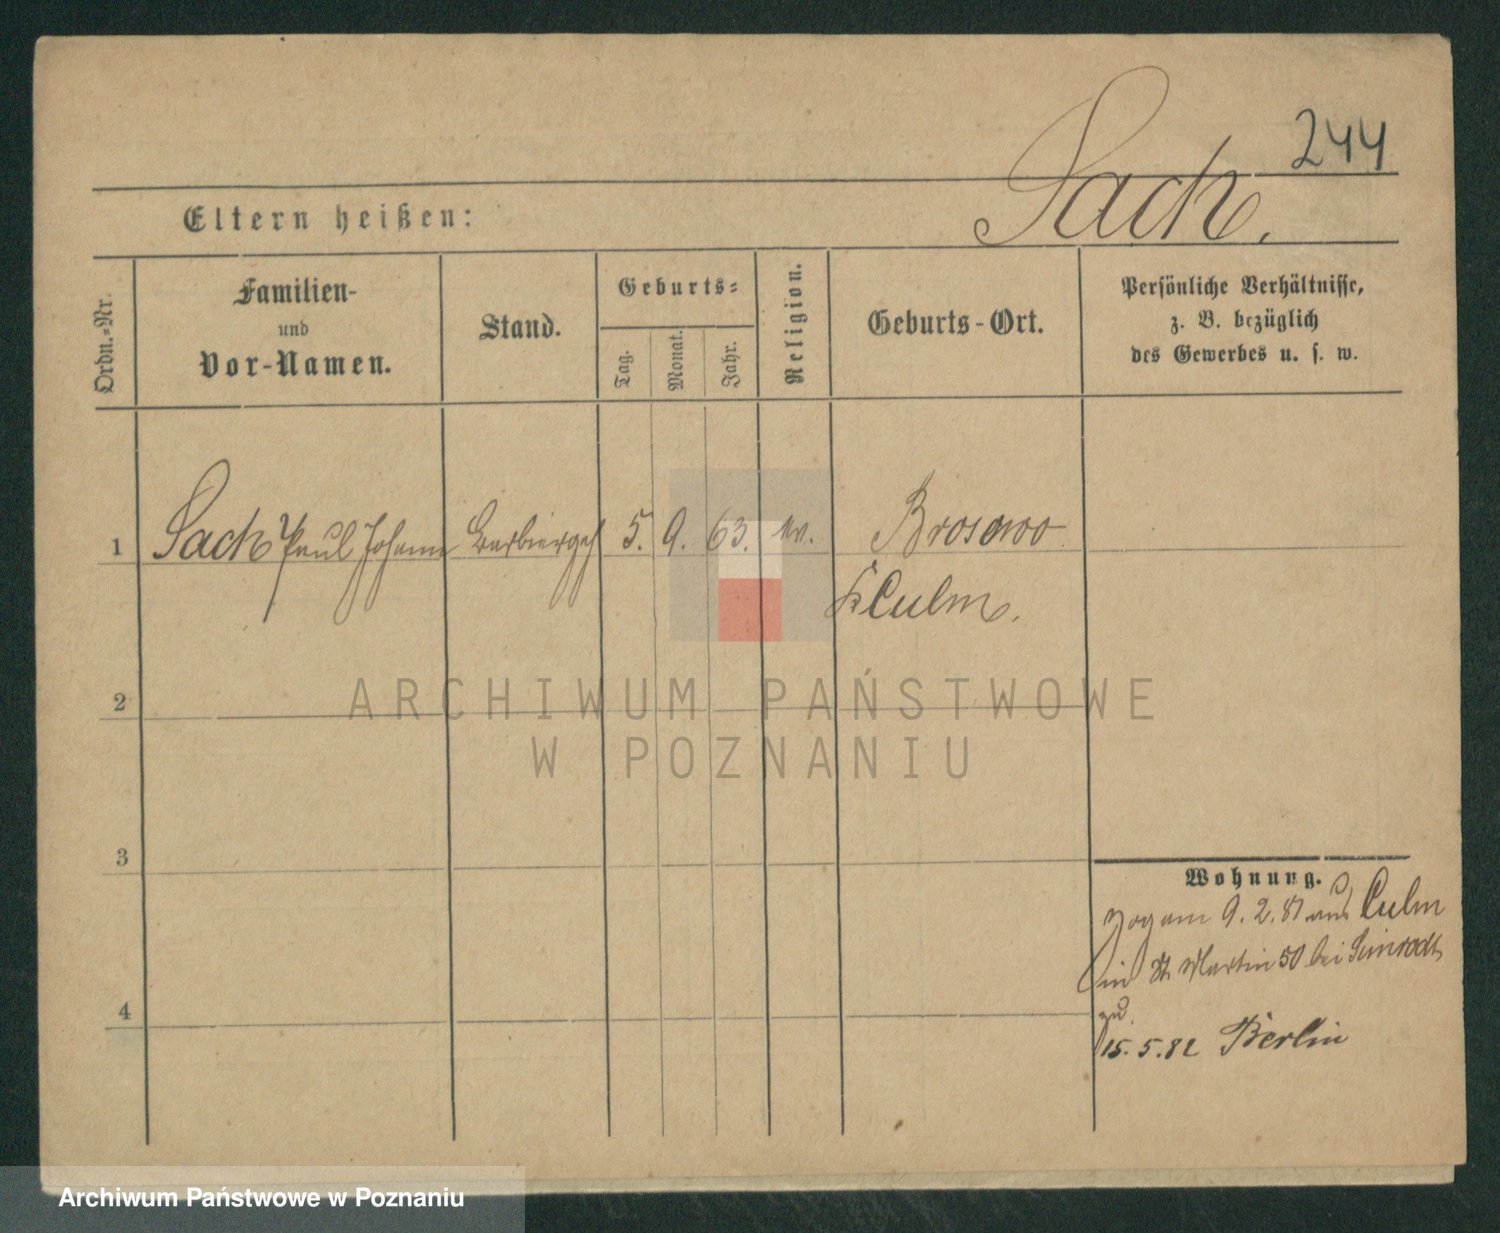 244
Sack.
Eltern heißen:
Ordn.-Nr.
Familien-
und
Vor-Namen.
Stand.
Geburts-
Tag.
Monat.
Jahr.
Religion.
Geburts-Ort.
Persönliche Verhältnisse,
z. B. bezüglich
des Gewerbes u. s. w.
1 Sack Paul Johann Barbiergeh 5. 9. 63. ev. Brosowo
K Culm.
ARCHIWUM PAŃSTWOWE
W POZNANIU
2
3
4
Wohnung.
Zog am 9. 2. 81 aus Culm
in St Martin 50 bei
zu
15. 5. 82 Berlin
Archiwum Państwowe w Poznaniu